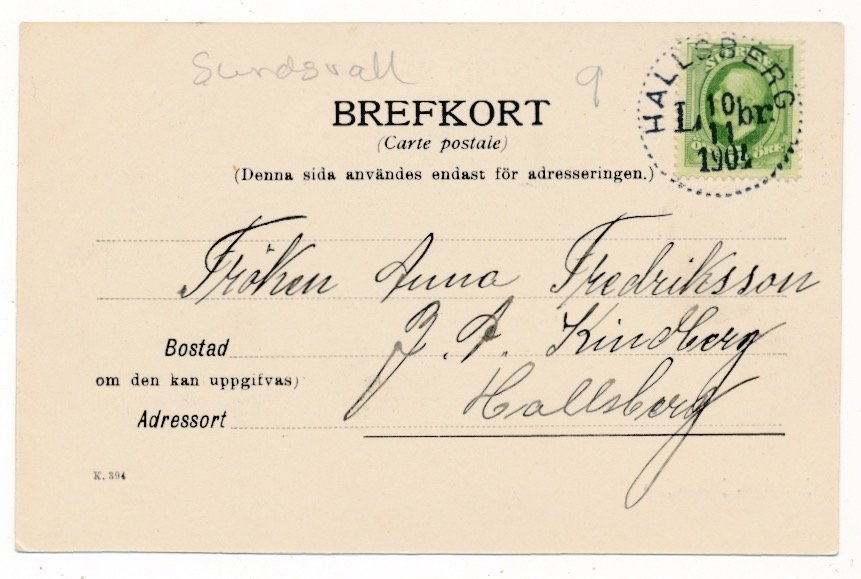 Sundsvall 9
HALLSBERG
SVERIGE
L. br.
10
11
1904
ÖRE
BREFKORT
(Carte postale)
(Denna sida användes endast för adresseringen.)
Fröken Anna Fredriksson
J. A. Kindberg
Bostad
om den kan uppgifvas)
Hallsberg
Adressort
K. 394